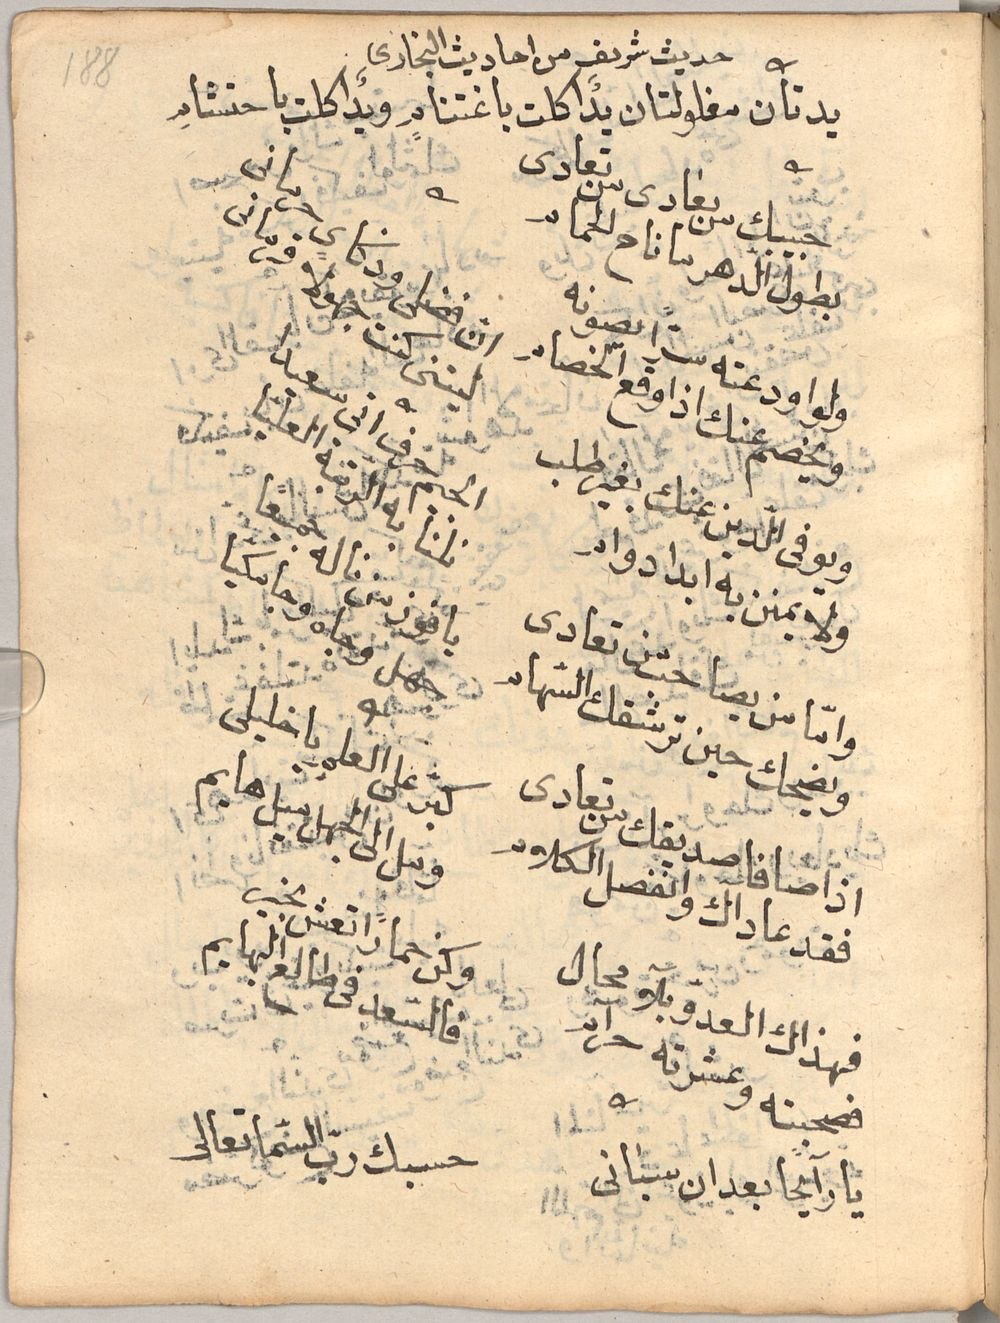 188
حديث شريف من احاديث البخارى
يدتان مغلولتان يدًا كلت باغتنامٍ ويدًا كلت باحتشامِ
حبيبك من يعادى من تعادى
بطول الدهر ما ناح الحمام
ولو اودعته سرًا يصونه
ويخصم عنك اذا وقع الخصام
ويوفى الدين عنك بغير طلب
ولا يمنن به ابدا دوام
واما من يصاحب من تعادى
ويضحك حين ترشقك السهام
اذا صافا صديقك من تعادى
فقد عاداك وانفصل الكلام
فهذاك العدو بلا محال
فصحبته وعشرته حرام
يا رايحا بعد ان سبانى
ان فضلى وذكاى
ليتنى كنت جهولا
نلنا به الرتبة العليا
يا فوز من ناله جميعا
جهل وجاه
كبّر على العلم يا خليلى
ومل الى الجهل ميل هايم
وكن حمارًا تعش بخير
فالسعد فى طالع البهايم
حسبك ربّ السّما تعالى